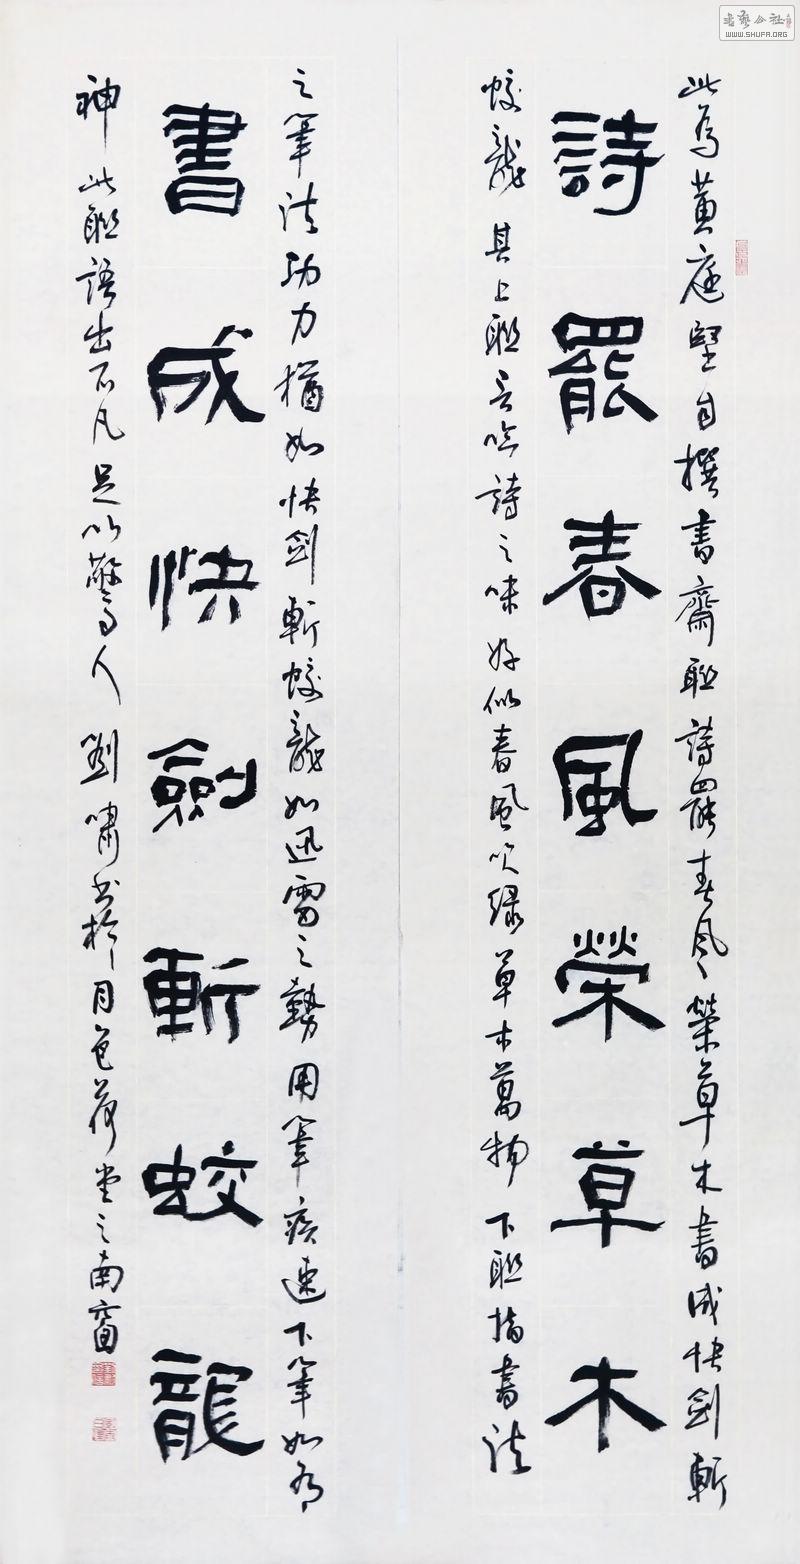 此為黃庭堅自撰書齋聯詩罷春風榮草木書成快劍斬
詩罷春風榮草木
蛟龍其上聯言吟詩之味好似春風吹綠草木萬物下聯指書法
之筆法功力猶如快劍斬蛟龍如迅雷之勢用筆疾速下筆如有
書成快劍斬蛟龍
神此聯語出不凡足以驚人劉嘯書於月色荷堂之南窗
書藝公社
WWW.SHUFA.ORG